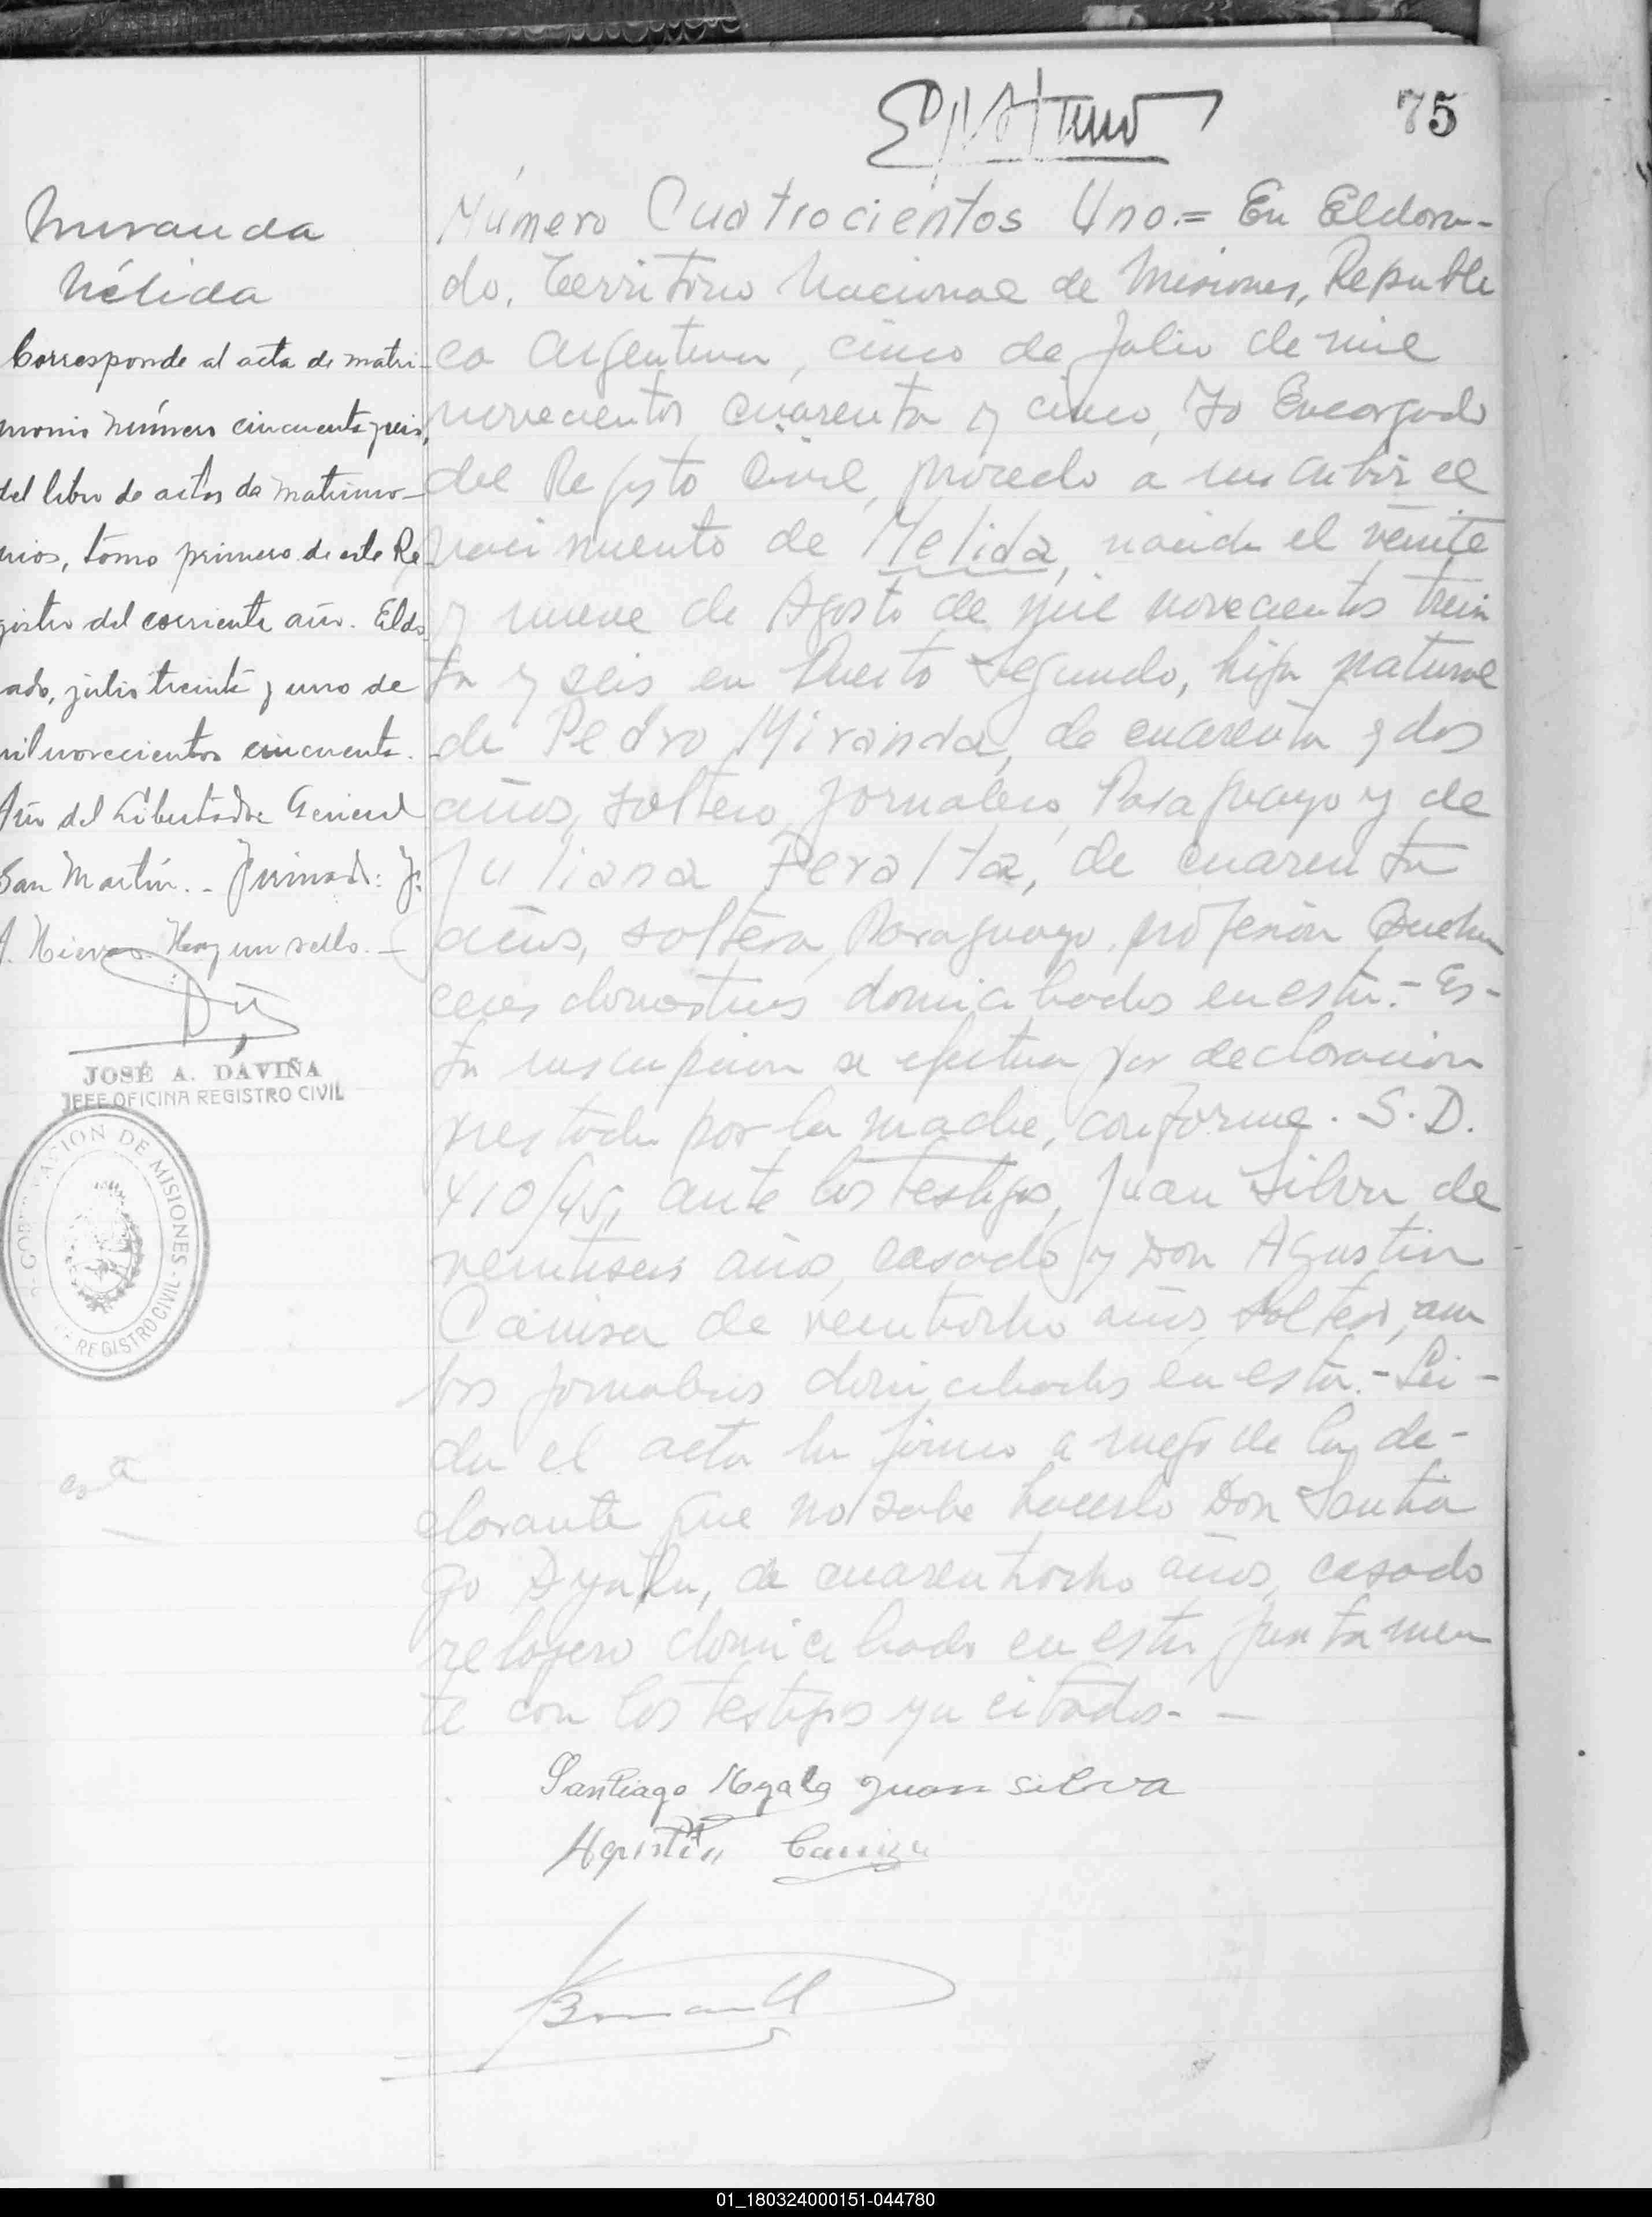 75
Miranda
Nélida
Corresponde al acta de matri-
monio número cincuenta y seis,
del libro de actas de matrimo-
nios, tomo primero de este Re
gistro del corriente año. Eldo
ado, julio treinta y uno de
mil novecientos cincuenta.
Año del Libertador General
San Martín.- Firmado: J.
A. Nieves. Hay un sello.-
JOSÉ A. DAVIÑA
JEFE OFICINA REGISTRO CIVIL
GOBERNACION DE MISIONES - REGISTRO CIVIL
Número Cuatrocientos Uno.= En Eldora-
do, Territorio Nacional de Misiones, Republi
ca Argentina, cinco de Julio de mil
novecientos cuarenta y cinco, Yo Encargado
del Registo Civil, procedo a inscribir el
nacimiento de Nelida, nacida el veinte
y nueve de Agosto de mil novecientos trein
ta y seis en Puerto Segundo, hija natural
de Pedro Miranda, de cuarenta y dos
años, soltero, jornalero, Paraguayo y de
Juliana Peralta, de cuarenta
años, soltera, Paraguaya, profesión Queha
ceres domesticos domiciliados en esta.- Es-
ta inscripcion se efectua por declaracion
prestada por la madre, conforme. S.D.
410/45, ante los testigos, Juan Silva de
veintiseis años, casado y Don Agustin
de veintiocho años, soltero, am
bos jornaleros domiciliados en esta.- Lei-
da el acta la firmo a ruego de la de-
clarante que no sabe hacerlo Don Santia
go Ayala, de cuarentiocho años, casado
relojero domiciliado en esta juntamen
te con los testigos ya citados.-
Santiago Ayala Juan Silva
Agustín
01_180324000151-044780